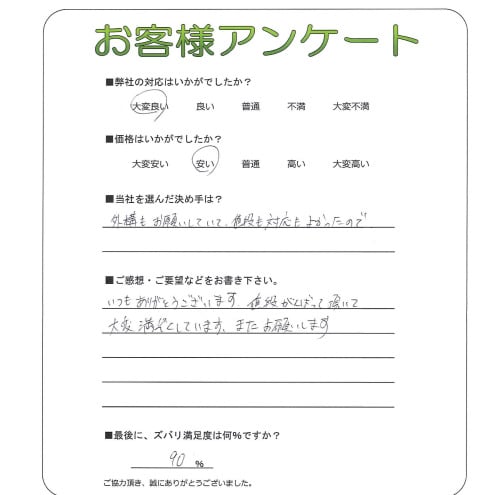 お客様アンケート
■弊社の対応はいかがでしたか？
大変良い 良い 普通 不満 大変不満
■価格はいかがでしたか？
大変安い 安い 普通 高い 大変高い
■当社を選んだ決め手は？
外構もお願いしていて、値段も対応もよかったので
■ご感想・ご要望などをお書き下さい。
いつもありがとうございます 値段がんばって頂いて
大変満ぞくしています、またお願いします
■最後に、ズバリ満足度は何%ですか？
90 %
ご協力頂き、誠にありがとうございました。